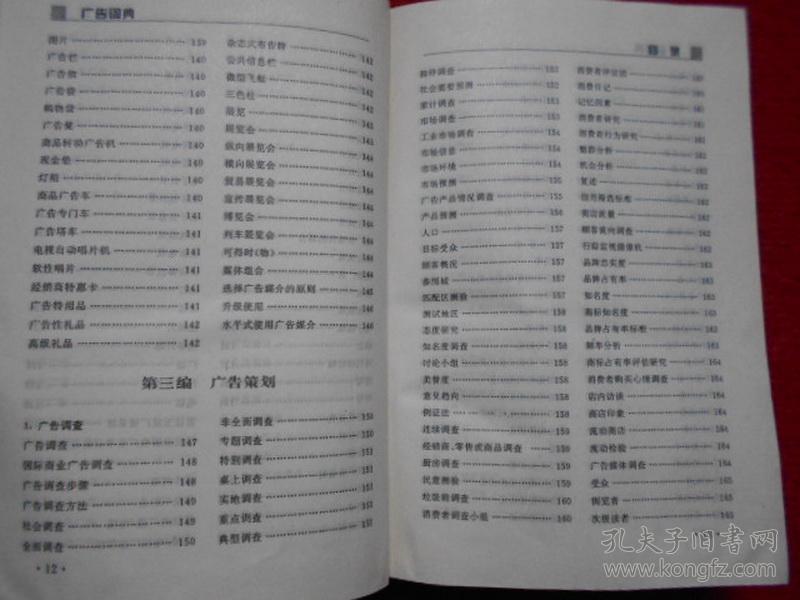 广告词典
图片 139
广告栏 140
广告牌 140
广告袋 140
购物袋 140
广告凳 140
商品转动广告机 140
现金垫 140
灯箱 140
商品广告车 140
广告专门车 141
广告塔车 141
电视自动唱片机 141
软性唱片 141
经销商特惠卡 141
广告特用品 141
广告性礼品 142
高级礼品 142
杂志式布告牌 142
公共信息栏 142
微型飞艇 142
三色柱
展览
展览会
纵向展览会
横向展览会 144
贸易展览会 144
宣传展览会 144
博览会 144
列车展览会 144
可得时(物) 144
媒体组合 144
选择广告媒介的原则 145
升级使用 146
水平式使用广告媒介 146
第三编 广告策划
1. 广告调查
广告调查 147
国际商业广告调查 148
广告调查步骤 148
广告调查方法 149
社会调查 149
全面调查 150
非全面调查 150
专题调查 150
特别调查 151
桌上调查 151
实地调查 151
重点调查 151
典型调查 151
·12·
目 录
抽样调查 152
社会需要预测 153
家计调查 153
市场调查 153
工业市场调查 154
市场信息 154
市场环境 154
市场预测 155
广告产品情况调查 155
产品预测 156
人口 156
目标受众 156
顾客概况 156
参预域 157
匹配区测验 157
测试地区 157
态度研究 157
知名度调查 158
讨论小组 158
美誉度 158
意见趋向 158
例证法 158
连续调查 159
经销商、零售或商品调查 159
厨房调查 159
民意测验 159
垃圾箱调查 160
消费者调查小组 160
消费者评估法 160
消费日记
记忆因素
消费者研究
消费者行为研究 161
整群分析 161
机会分析 161
复述
商店质量 162
顾客意向调查 162
行踪监视摄像机 162
品牌忠实度 162
品牌占有率 162
知名度 163
商标知名度 163
品牌占有率标准 163
频率分析 163
商标占有率评估研究 164
消费者购买心境调查 164
店内访谈 164
商店印象 164
流动商店 164
流动检验 164
广告媒体调查 164
受众 165
浏览者 165
次级读者 165
孔夫子旧书网
www.kongfz.com